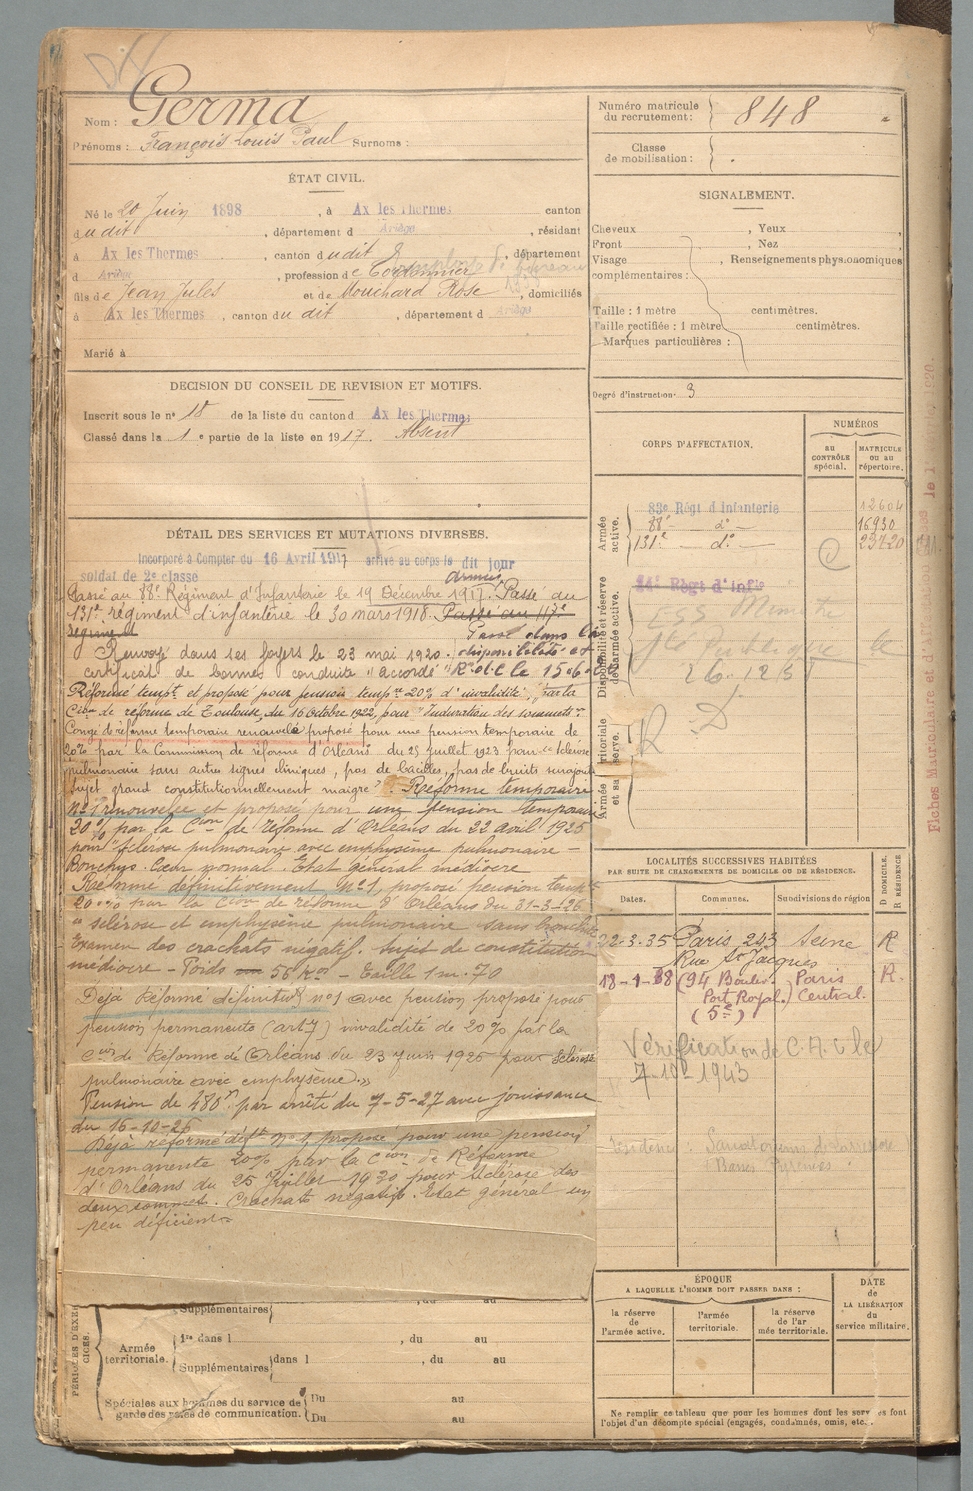 Germa
Nom :
Prénoms : François Louis Paul Surnoms :
Numéro matricule du recrutement : 848
Classe de mobilisation :
ÉTAT CIVIL.
Né le 20 Juin 1898, à Ax les Thermes canton
dudit, département d Ariège, résidant
à Ax les Thermes, canton dudit, département
d Ariège, profession de Cordonnier
fils de Jean Jules et de Mouchard Rose, domiciliés
à Ax les Thermes, canton du dit, département d Ariège
Marié à
DECISION DU CONSEIL DE REVISION ET MOTIFS.
Inscrit sous le n° 18 de la liste du canton d Ax les Thermes
Classé dans la 1e partie de la liste en 1917. Absent
DÉTAIL DES SERVICES ET MUTATIONS DIVERSES.
Incorporé à Compter du 16 Avril 1917 arrivé au corps le dit jour
soldat de 2e classe
Passé au 88e Régiment d'Infanterie le 19 Décembre 1917. Passé au
131e régiment d'infanterie le 30 mars 1918. Passé au 117e
régiment Passé dans la
Renvoyé dans ses foyers le 23 mai 1920. disponibilité et
certificat de bonnes conduite "accordé"
Réformé tempt et proposé pour pension tempre 20% d'invalidité, par la
Cion de réforme de Toulouse, du 16 Octobre 1922, pour "Induration des sommets".
Congé de réforme temporaire renouvelé proposé pour une pension temporaire de
20% par la Commission de réforme d'Orléans du 25 juillet 1923 pour "sclérose
pulmonaire sans autres signes cliniques, pas de bacilles, pas de bruits surajoutés
Sujet grand constitutionnellement maigre". Réforme temporaire
N°1 renouvelée et proposé pour une pension temporaire
20% par la Cion de réforme d'Orléans du 22 avril 1925
pour "sclérose pulmonaire avec emphysème pulmonaire -
Cœur normal. Etat général médiocre
Réformé définitivement N°1, proposé pension tempre
20% par la Cion de réforme d'Orléans du 31-3-26
"sclérose et emphysème pulmonaire sans bronchite
Examen des crachats négatif. Sujet de constitution
médiocre - Poids 56 kos - Taille 1m.70
Déjà Réformé définitif n°1 avec pension proposé pour
pension permanente (art 7) invalidité de 20% par la
Cion de Réforme de Orléans du 23 Juin 1926 pour sclérose
pulmonaire avec emphysème."
Pension de 480f par arrêté du 7-5-27 avec jouissance
du 16-10-26
Déjà réformé déft n°1, proposé pour une pension
permanente 20% par la Cion de Réforme
d'Orléans du 25 Juillet 1930 pour sclérose des
deux sommets. Crachats négatifs. Etat général un
peu déficient
PÉRIODES D'EXERCICES.
Supplémentaires , du au
Armée territoriale.
1re dans l , du au
Supplémentaires dans l , du au
Spéciales aux hommes du service de garde des voies de communication.
Du au
Du au
SIGNALEMENT.
Cheveux , Yeux
Front , Nez
Visage , Renseignements physionomiques
complémentaires :
Taille : 1 mètre centimètres.
Taille rectifiée : 1 mètre centimètres.
Marques particulières :
Degré d'instruction 3
CORPS D'AFFECTATION.
NUMÉROS
AU CONTRÔLE spécial.
MATRICULE OU AU répertoire.
Armée active.
83e Régt d'infanterie 12604
88e - do - 16930
131e - do - 23720
Disponibilité et réserve de l'armée active.
26.12.51
R D
Armée territoriale et sa réserve.
LOCALITÉS SUCCESSIVES HABITÉES
PAR SUITE DE CHANGEMENTS DE DOMICILE OU DE RÉSIDENCE.
D DOMICILE.
R RÉSIDENCE
Dates. Communes. Subdivisions de région
22-3-35 Paris 243 Seine R
Rue St Jacques
18-1-38 (94 Boulev. Paris R.
Port Royal.) Central.
(5e)
Vérification de C.A.
1943
ÉPOQUE
A LAQUELLE L'HOMME DOIT PASSER DANS :
la réserve de l'armée active.
l'armée territoriale.
la réserve de l'armée territoriale.
DATE DE LA LIBÉRATION du service militaire.
Ne remplir ce tableau que pour les hommes dont les services font
l'objet d'un décompte spécial (engagés, condamnés, omis, etc.)